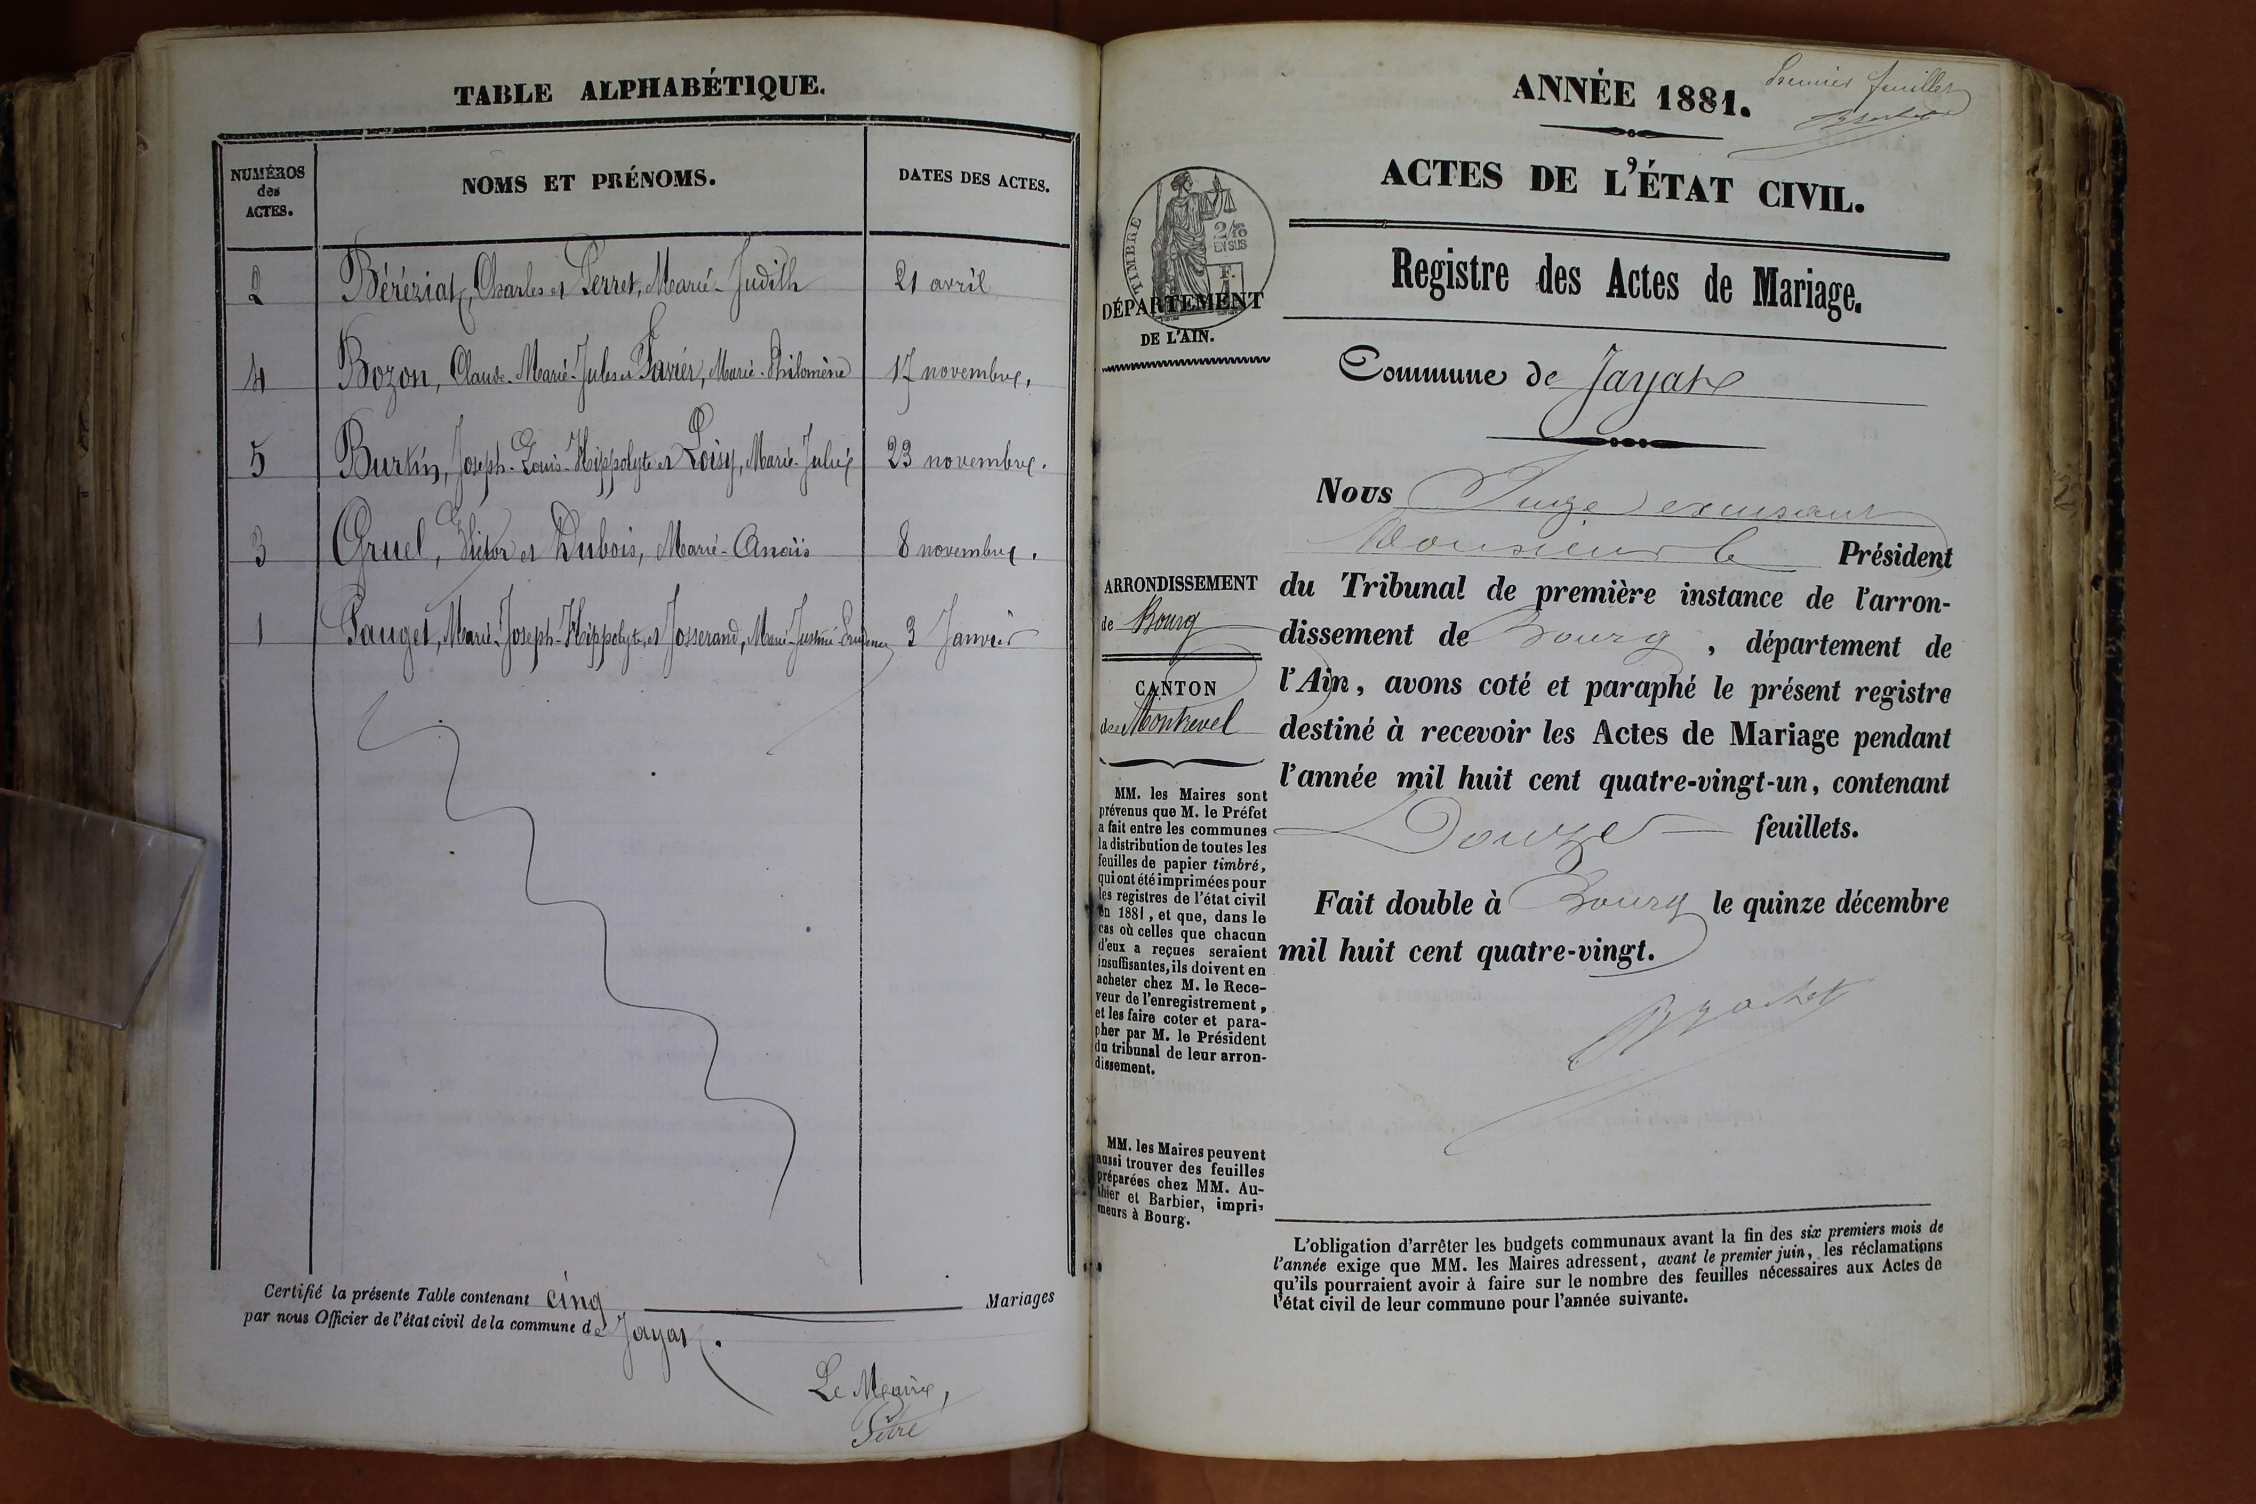 TABLE ALPHABÉTIQUE.
NUMÉROS des ACTES.
NOMS ET PRÉNOMS.
DATES DES ACTES.
2 Béréziat, Charles et Perret, Marie-Judith 21 avril
4 Bozon, Claude-Marie-Jules et Favier, Marie-Philomène 17 novembre.
5 Burtin, Joseph-Louis-Hippolyte et Loisy, Marie-Julie 23 novembre.
3 Gruel, Victor et Dubois, Marie-Anaïs 8 novembre.
1 Pauget, Marie-Joseph-Hippolyte et Josserand, Marie-Justine 3 Janvier
Certifié la présente Table contenant cinq Mariages
par nous Officier de l'état civil de la commune de Jayat.
Le Maire,
ANNÉE 1881.
Premier feuillet
ACTES DE L'ÉTAT CIVIL.
Registre des Actes de Mariage.
TIMBRE
2/10 EN SUS
DÉPARTEMENT
DE L'AIN.
Commune de Jayat
Nous Juge
Monsieur le Président
du Tribunal de première instance de l'arron-
dissement de Bourg, département de
l'Ain, avons coté et paraphé le présent registre
destiné à recevoir les Actes de Mariage pendant
l'année mil huit cent quatre-vingt-un, contenant
Douze feuillets.
Fait double à Bourg le quinze décembre
mil huit cent quatre-vingt.
ARRONDISSEMENT
de Bourg
CANTON
de Montrevel
MM. les Maires sont
prévenus que M. le Préfet
a fait entre les communes
la distribution de toutes les
feuilles de papier timbré,
qui ont été imprimées pour
les registres de l'état civil
en 1881, et que, dans le
cas où celles que chacun
d'eux a reçues seraient
insuffisantes, ils doivent en
acheter chez M. le Rece-
veur de l'enregistrement,
et les faire coter et para-
pher par M. le Président
du tribunal de leur arron-
dissement.
MM. les Maires peuvent
aussi trouver des feuilles
préparées chez MM. Au-
thier et Barbier, impri-
meurs à Bourg.
L'obligation d'arrêter les budgets communaux avant la fin des six premiers mois de
l'année exige que MM. les Maires adressent, avant le premier juin, les réclamations
qu'ils pourraient avoir à faire sur le nombre des feuilles nécessaires aux Actes de
l'état civil de leur commune pour l'année suivante.